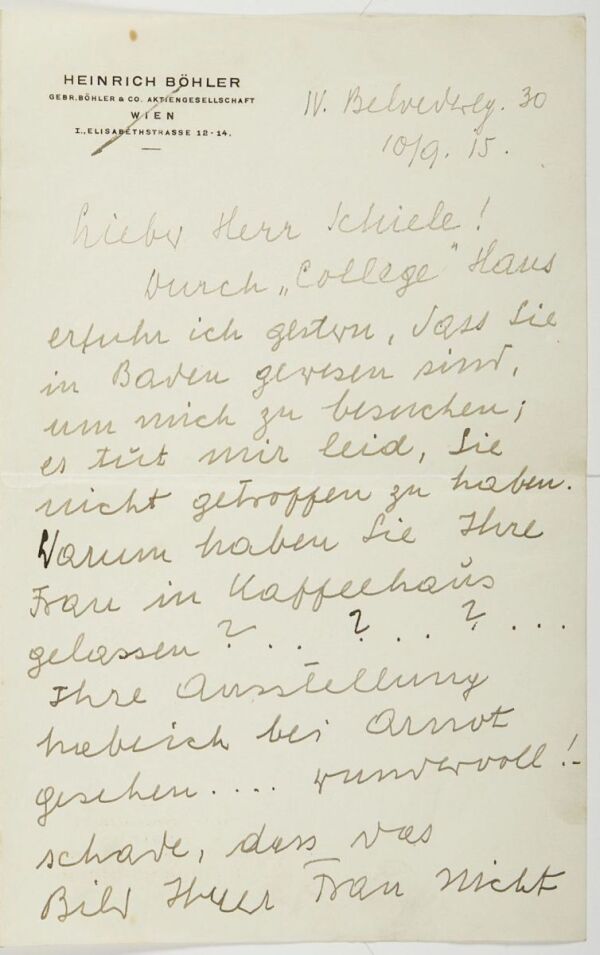 HEINRICH BÖHLER
GEBR. BÖHLER & CO. AKTIENGESELLSCHAFT
WIEN
I., ELISABETHSTRASSE 12-14.
IV. Belvedereg. 30
10/9. 15.
Lieber Herr Schiele!
Durch „College" Haus
erfuhr ich gestern, dass Sie
in Baden gewesen sind,
um mich zu besuchen;
es tut mir leid, Sie
nicht getroffen zu haben.
Warum haben Sie Ihre
Frau in Kaffeehaus
gelassen ? . . ? . . ? . . .
Ihre Ausstellung
habe ich bei Arnot
gesehen. . . . wundervoll!-
schade, dass das
Bild Ihrer Frau nicht